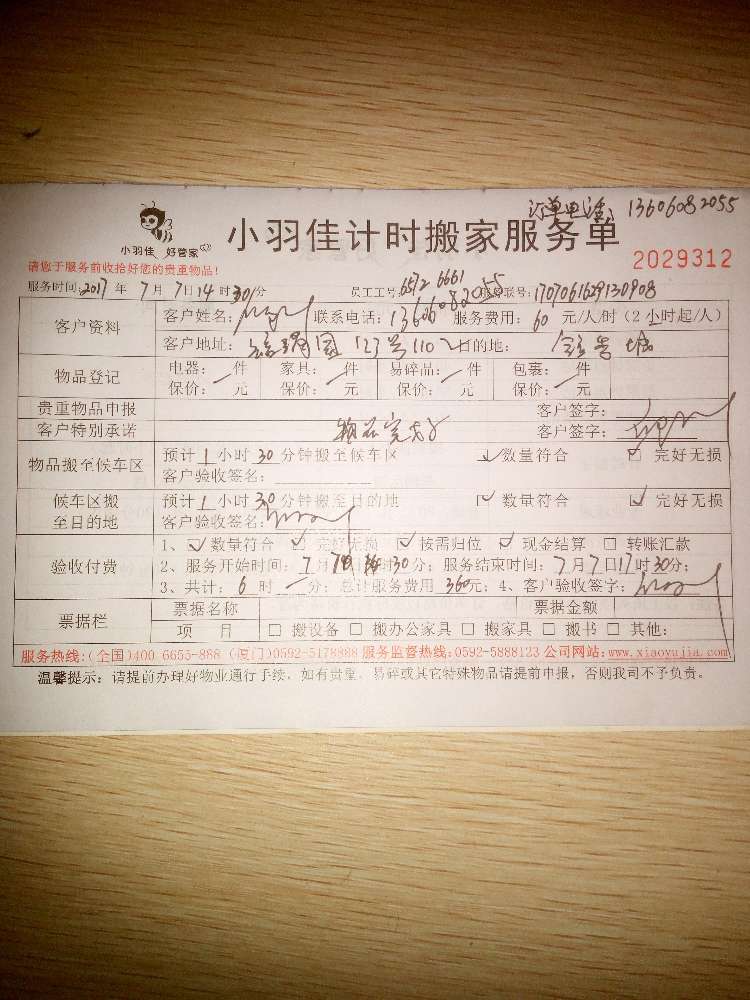 订单电话 13606082055
小羽佳 好管家
小羽佳计时搬家服务单
2029312
请您于服务前收拾好您的贵重物品!
服务时间:2017年7月7日14时30分 员工工号:6572 6661 联号:1707061629130908
客户资料 客户姓名: 联系电话:13606082055 服务费用:60元/人/时(2小时起/人)
客户地址: 园123号110 目的地:
物品登记 电器: 一件 家具: 一件 易碎品: 一件 包裹: 一件
保价: 元 保价: 元 保价: 元 保价: 元
贵重物品申报 客户签字:
客户特别承诺 物品完好 客户签字:
物品搬至候车区 预计1小时30分钟搬至候车区 ✓数量符合 □ 完好无损
客户验收签名:
候车区搬至目的地 预计1小时30分钟搬至目的地 ☑ 数量符合 ☑ 完好无损
客户验收签名:
验收付费 1、☑ 数量符合 ☑ 完好无损 ☑ 按需归位 ☑ 现金结算 □ 转账汇款
2、服务开始时间:7月7日 时30分; 服务结束时间:7月7日17时30分;
3、共计:6时一分; 总计服务费用 360元; 4、客户验收签字:
票据栏 票据名称 票据金额
项 目 □ 搬设备 □ 搬办公家具 □ 搬家具 □ 搬书 □ 其他:
服务热线:(全国)400 6655-888 (厦门)0592-5178888 服务监督热线:0592-5888123 公司网站:www.xiaoyujia.com
温馨提示: 请提前办理好物业通行手续, 如有贵重、易碎或其它特殊物品请提前申报, 否则我司不予负责。